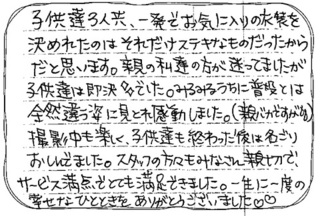 子供達3人共、一発でお気に入りの衣装を
決めれたのはそれだけステキなものだったから
だと思います。親の私達の方が迷ってましたが
子供達は即決多でした。みるみるうちに普段とは
全然違う姿に見とれ感動しました。(親バカですがね)
撮影中も楽しく、子供達も終わった後は名ごり
おしんでました。スタッフの方々もみなさん親切で、
サービス満点でとても満足できました。一生に一度の
幸せなひとときをありがとうございました♡♡